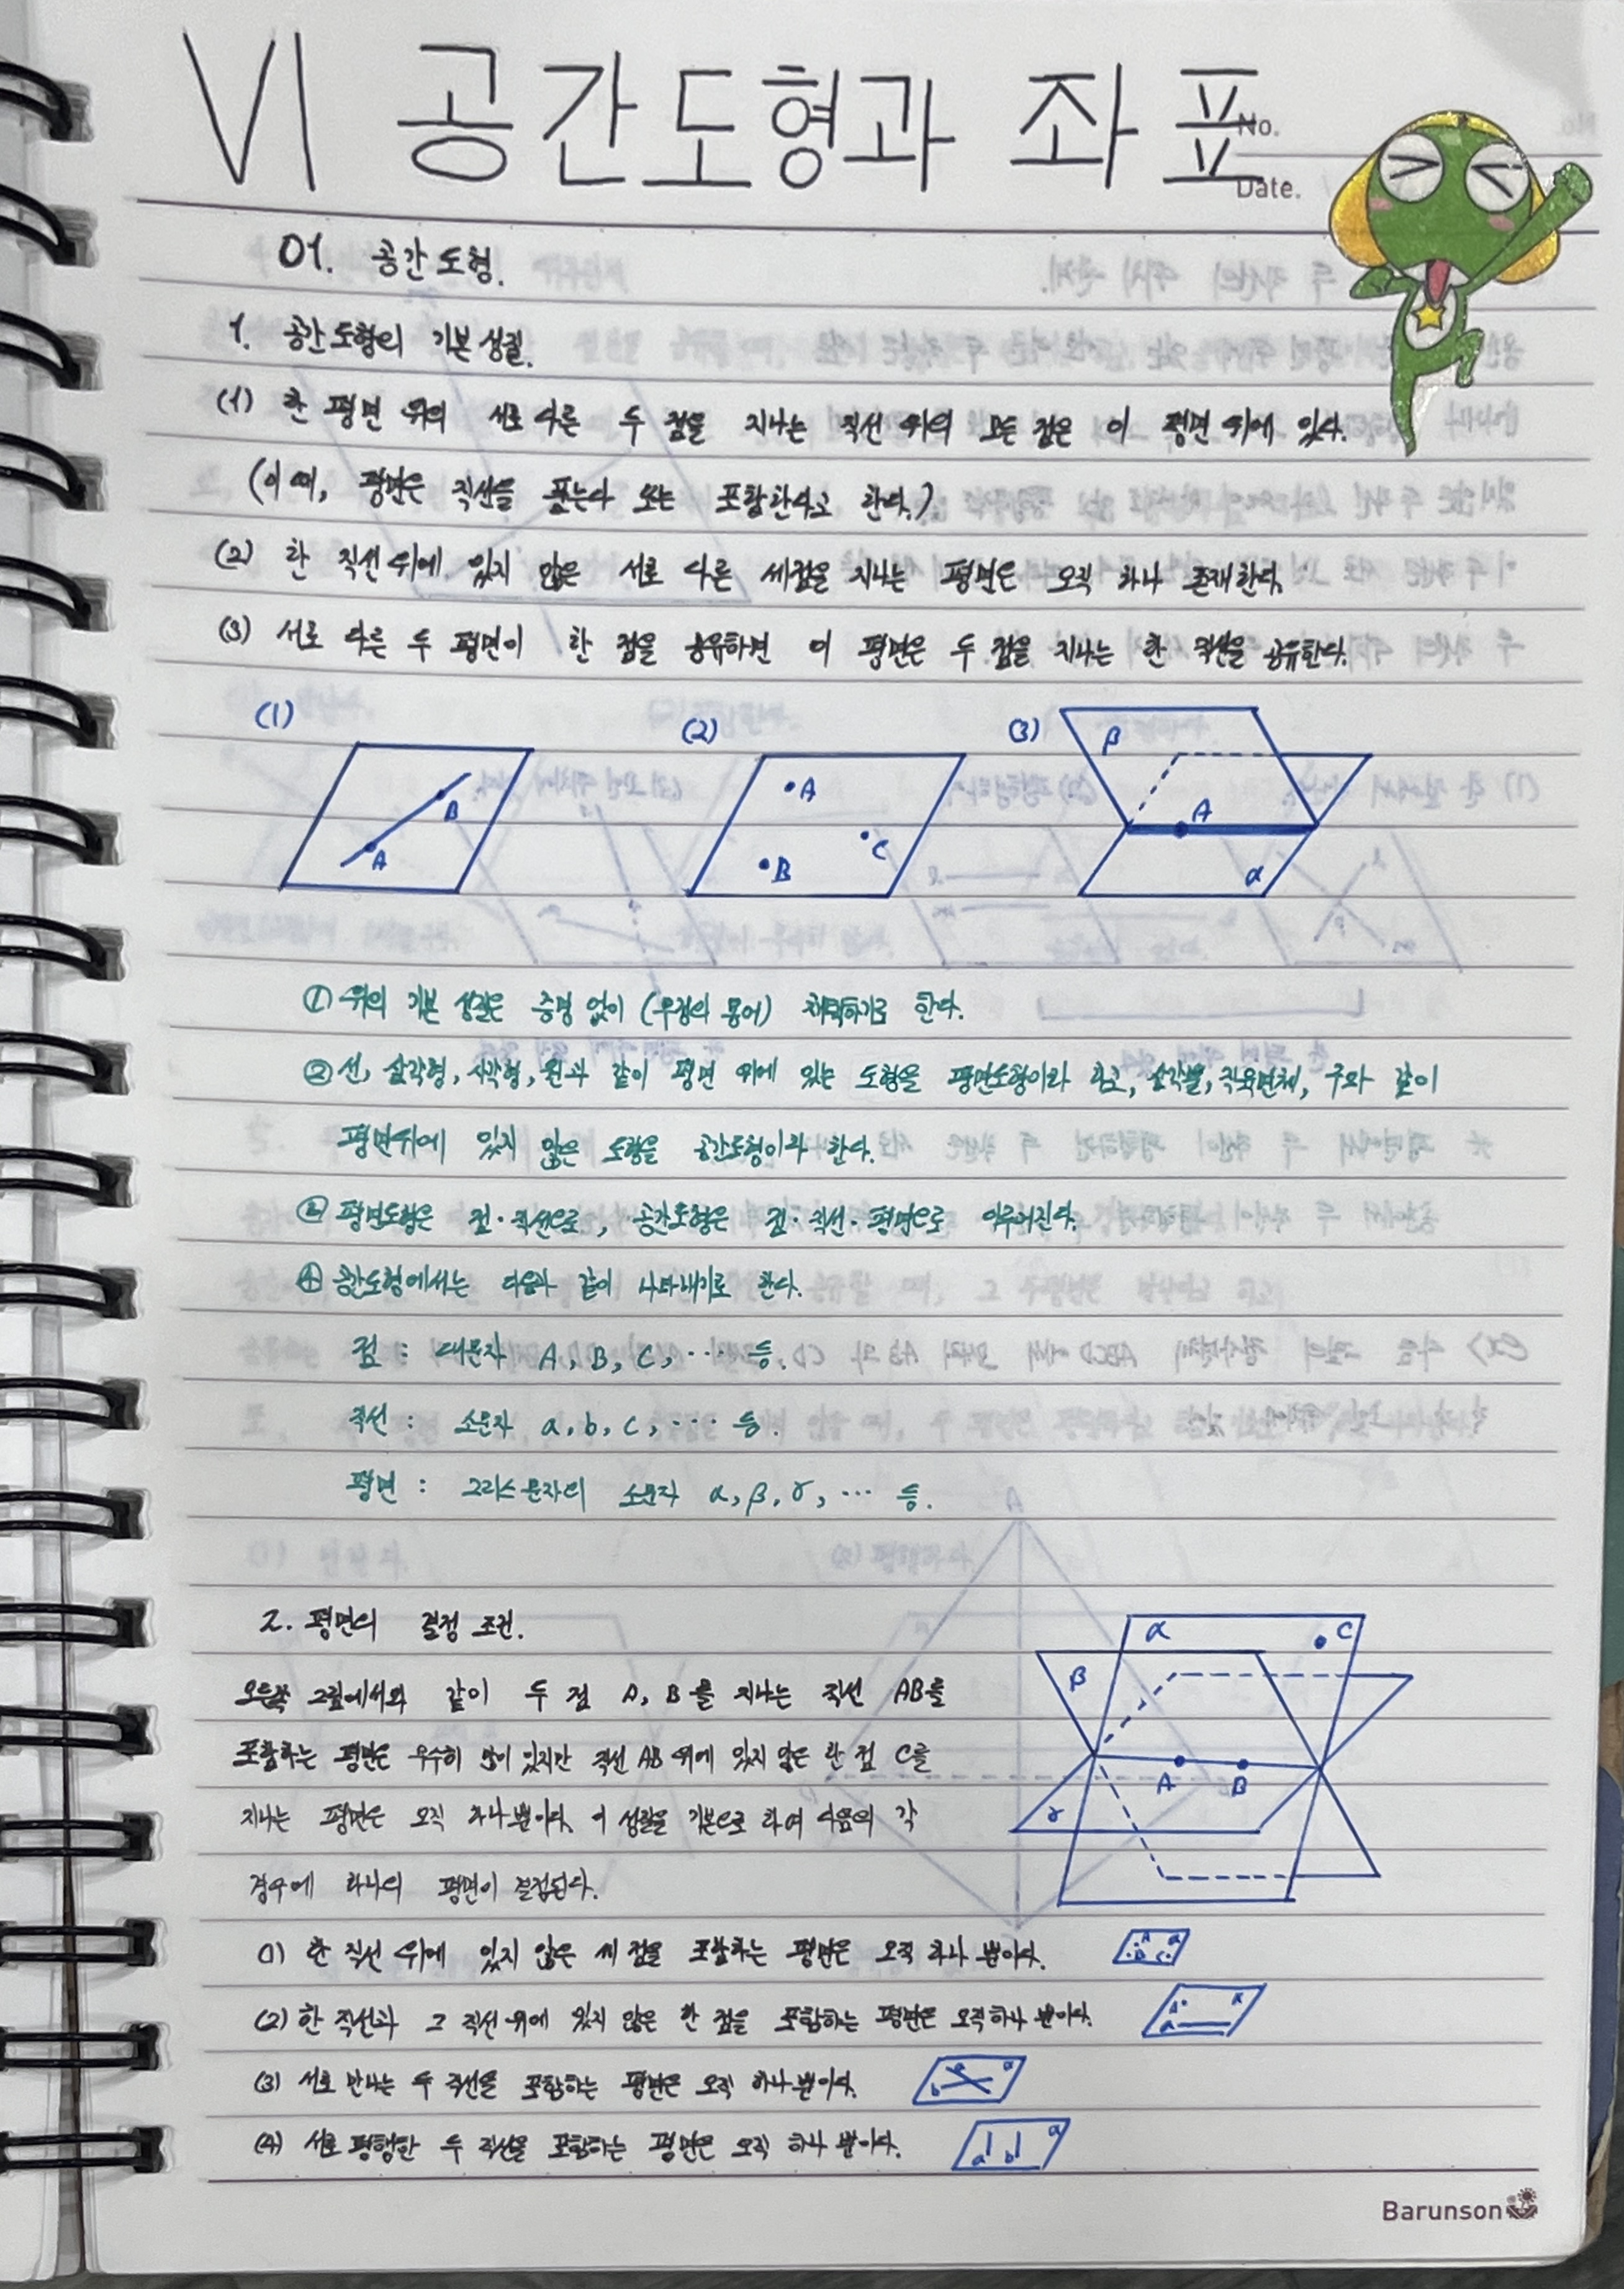 VI 공간도형과 좌표
No.
Date.
01. 공간도형.
1. 공간도형의 기본 성질.
(1) 한 평면 위의 서로 다른 두 점을 지나는 직선 위의 모든 점은 이 평면 위에 있다.
(이 때, 평면은 직선을 품는다 또는 포함한다고 한다.)
(2) 한 직선 위에 있지 않은 서로 다른 세점을 지나는 평면은 오직 하나 존재한다.
(3) 서로 다른 두 평면이 한 점을 공유하면 이 평면은 두 점을 지나는 한 직선을 공유한다.
(1)
B
A
(2)
A
C
B
(3)
β
A
α
① 위의 기본 성질은 증명 없이 (무정의 용어) 채택하기로 한다.
② 선, 삼각형, 사각형, 원과 같이 평면 위에 있는 도형을 평면도형이라 하고, 삼각뿔, 직육면체, 구와 같이
평면위에 있지 않은 도형을 공간도형이라 한다.
③ 평면도형은 점·직선으로, 공간도형은 점·직선·평면으로 이루어진다.
④ 공간도형에서는 다음과 같이 나타내기로 한다.
점 : 대문자 A, B, C, ···· 등.
직선 : 소문자 a, b, c, ···· 등.
평면 : 그리스문자의 소문자 α, β, γ, ··· 등.
2. 평면의 결정 조건.
오른쪽 그림에서와 같이 두 점 A, B를 지나는 직선 AB를
포함하는 평면은 무수히 많이 있지만 직선 AB 위에 있지 않은 한 점 C를
지나는 평면은 오직 하나뿐이다. 이 성질을 기본으로 하여 다음의 각
경우에 하나의 평면이 결정된다.
α
C
β
A
B
γ
(1) 한 직선 위에 있지 않은 세 점을 포함하는 평면은 오직 하나 뿐이다.
A α
B C
(2) 한 직선과 그 직선 위에 있지 않은 한 점을 포함하는 평면은 오직하나 뿐이다.
A α
a
(3) 서로 만나는 두 직선을 포함하는 평면은 오직 하나뿐이다.
a α
b
(4) 서로 평행한 두 직선을 포함하는 평면은 오직 하나 뿐이다.
α
a b
Barunson